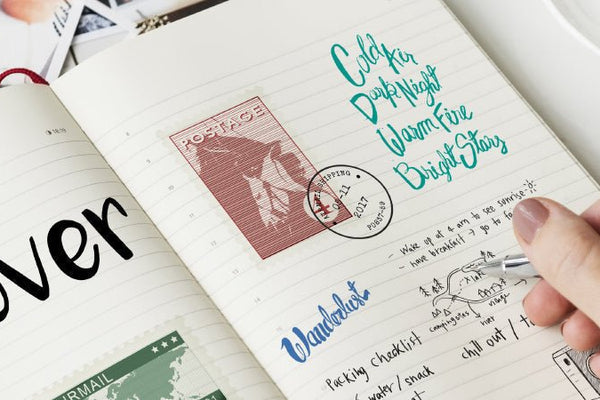 over
18:19
8
9
10
11
12
13
14
POSTAGE
SHIPPING
04-11
2017
Cold Air
Dark Night
Warm Fire
Bright Stars
- Wake up at 4 am to see sunrise
- have breakfast → go to
village
camping sites
river
Wanderlust
Packing checklist
water/snack
chill out / t
AIRMAIL